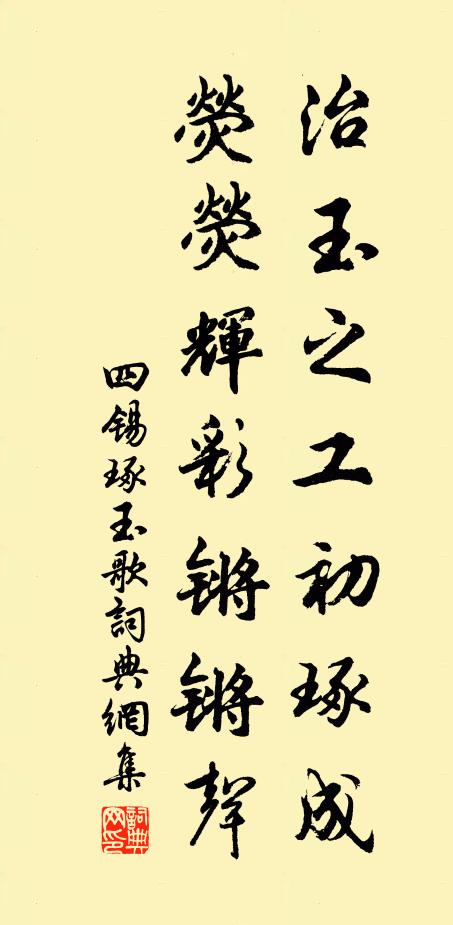 治玉之工初琢成
熒熒輝彩锵锵聲
四錫琢玉歌詞典網集
詞典网印